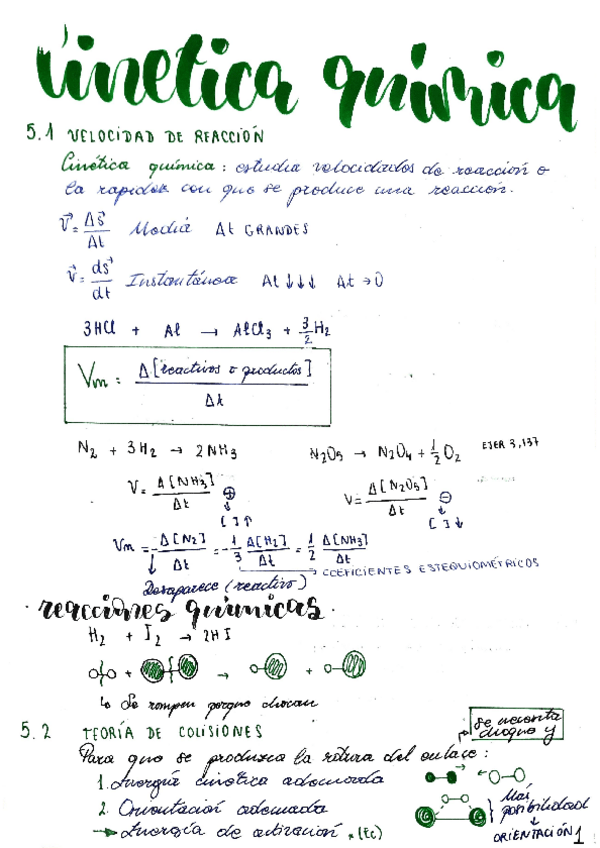 Cinetica química
5.1 VELOCIDAD DE REACCIÓN
Cinética química : estudia velocidades de reacción o
la rapidez con que se produce una reacción.
v⃗ = Δs⃗/Δt Media Δt GRANDES
v⃗ = ds⃗/dt Instantánea Δt ↓↓↓ Δt → 0
3HCl + Al → AlCl₃ + 3/2 H₂
Vm = Δ[reactivos o productos]/Δt
N₂ + 3H₂ → 2NH₃ N₂O₅ → N₂O₄ + 1/2 O₂ EJER 3,137
V = Δ[NH₃]/Δt ⊕ V = Δ[N₂O₅]/Δt ⊖
[ ]↑ [ ]↓
Vm = -Δ[N₂]/Δt = -1/3 Δ[H₂]/Δt = 1/2 Δ[NH₃]/Δt
→ COEFICIENTES ESTEQUIOMÉTRICOS
Desaparece (reactivo)
· reacciones químicas ·
H₂ + I₂ → 2HI
+ → +
↳ Se rompen porque chocan
5.2 TEORÍA DE COLISIONES
se necesita
choque y
Para que se produzca la rotura del enlace :
1. Energía cinética adecuada
2. Orientación adecuada
→ Energía de activación * (Ec)
Más
posibilidad
↓
ORIENTACIÓN 1